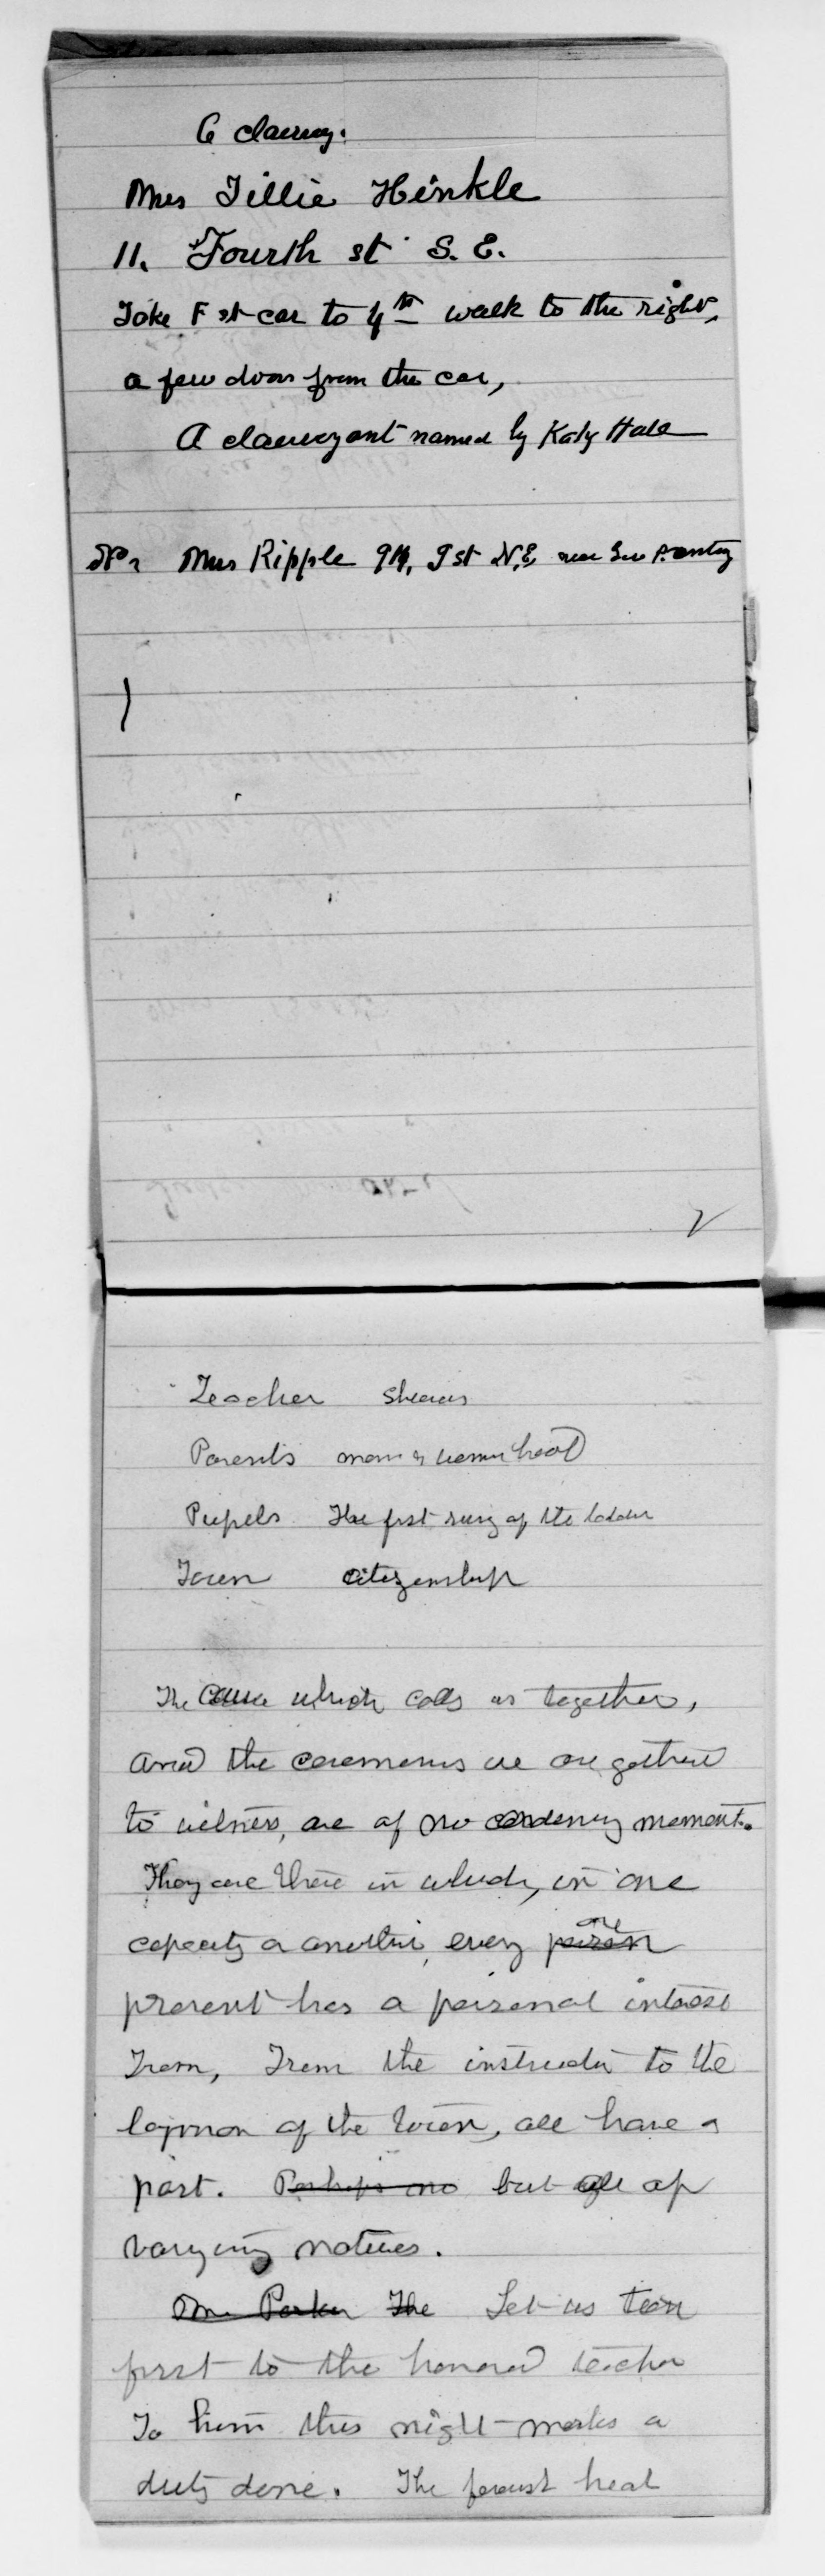 Mrs Tillie Hinkle
11. Fourth st S. E.
Take F st car to 4th walk to the right,
a few doors from the car,
A clairvoyant named by Katy Hale
Mrs Ripple 914, I st N.E,
Teacher
Parents man & woman hood
Pupels The first rung of the ladder
Town Citizenship
The cause which calls us together,
and the ceremonies we are gathered
to witness, are of no ordinary moment.
They are those in which, in one
capacity or another, every person one
present has a personal interest
From, From the instructor to the
layman of the town, all have a
part. Perhaps no but all of
varying natures.
Mr Parker The Let us turn
first to the honored teacher
To him this night marks a
duty done. The heat